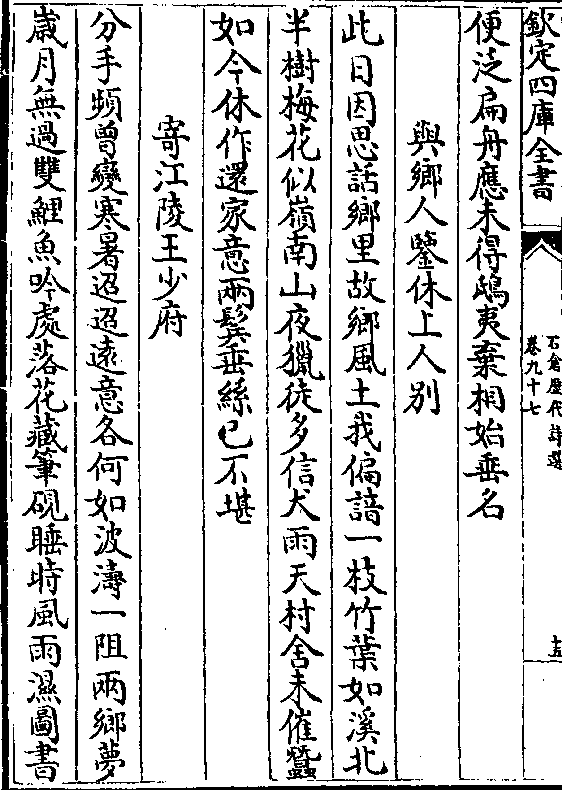 欽定四庫全書
石倉歴代詩選
卷九十七
十五
便泛扁舟應未得鴟夷棄相始垂名
與鄉人鑒休上人别
此日因思話鄉里故鄉風土我偏諳一枝竹葉如溪北
半樹梅花似嶺南山夜獵徒多信犬雨天村舍未催蠶
如今休作還家意兩鬂垂絲已不堪
寄江陵王少府
分手頻曾變寒暑迢迢逺意各何如波濤一阻兩鄉夢
歳月無過雙鯉魚吟處落花藏筆硯睡時風雨濕圖書